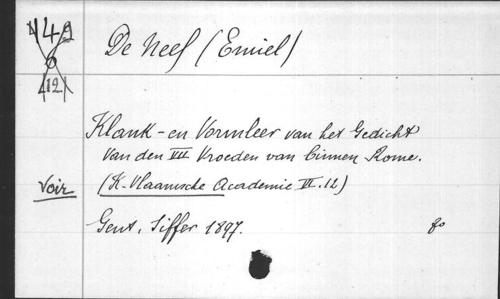 449
De Neef (Emiel)
(12)
Klank- en Vormleer van het Gedicht
Van den VII Vroeden van binnen Rome.
Voir
(K. Vlaamsche Academie VI. 12)
Gent, Siffer 1897.
8o